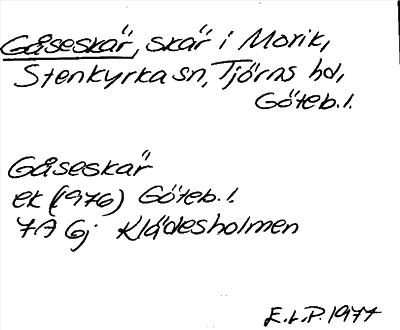 Gåseskär, skär i Morik,
Stenkyrka sn, Tjörns hd,
Göteb. l.
Gåseskär
ek (1976) Göteb. l.
7A 6j Klädesholmen
E.L.P. 1977